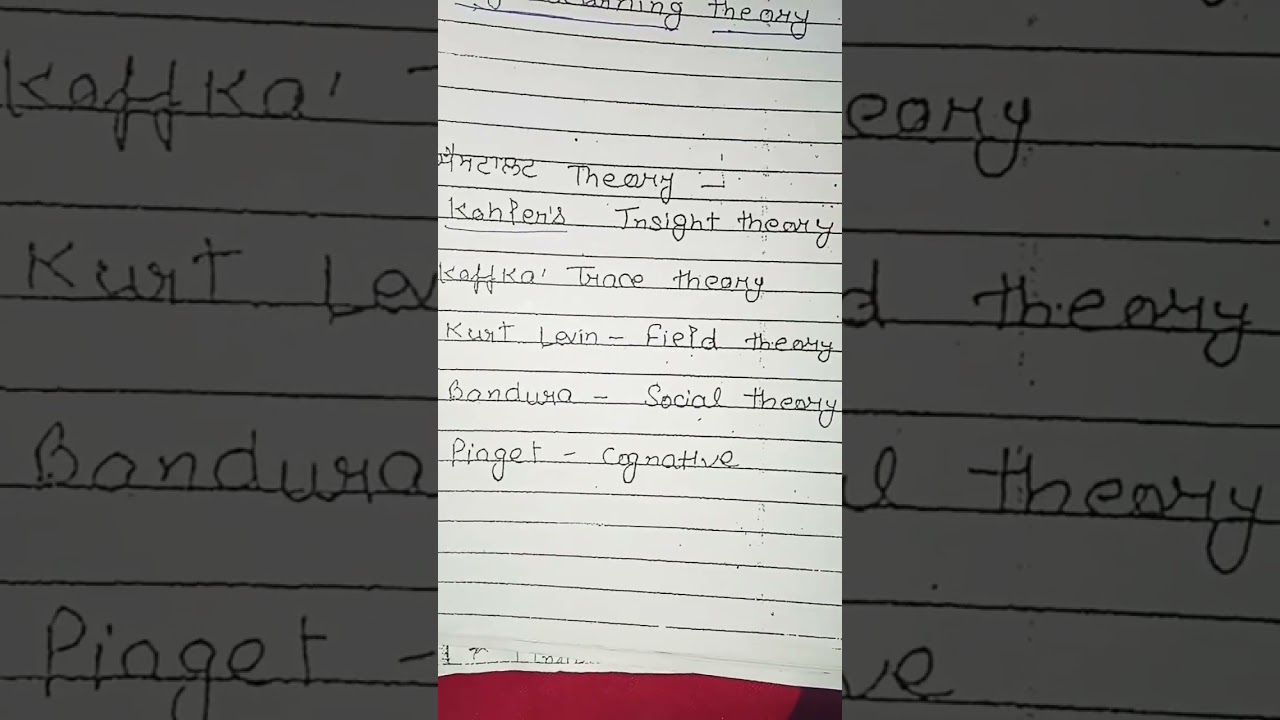 learning theory
ਗੈਸਟਾਲਟ Theory -
Kohler's Insight theory
Koffka' Trace theory
Kurt Levin - field theory
Bandura - Social theory
Piaget - Cognative